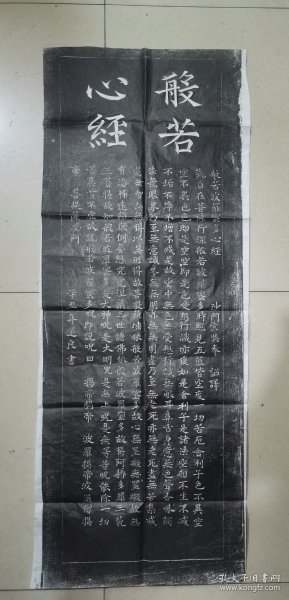 般若
心經
般若波羅蜜多心經 沙門玄奘奉 詔譯
觀自在菩薩行深般若波羅蜜多時照見五蘊皆空度一切苦厄舍利子色不異空
空不異色色即是空空即是色受想行識亦復如是舍利子是諸法空相不生不滅
不垢不淨不增不減是故空中無色無受想行識無眼耳鼻舌身意無色聲香味觸
法無眼界乃至無意識界無無明亦無無明盡乃至無老死亦無老死盡無苦集滅
道無智亦無得以無所得故菩提薩埵依般若波羅蜜多故心無罣礙無罣礙故無
有恐怖遠離顛倒夢想究竟涅槃三世諸佛依般若波羅蜜多故得阿耨多羅三藐
三菩提故知般若波羅蜜多是大神呪是大明呪是無上呪是無等等呪能除一切
苦真實不虛故說般若波羅蜜多呪即說呪曰 揭帝揭帝 波羅揭帝 波羅僧揭
帝 菩提薩婆訶 年遂良書
孔夫子旧书网
www.kongfz.com